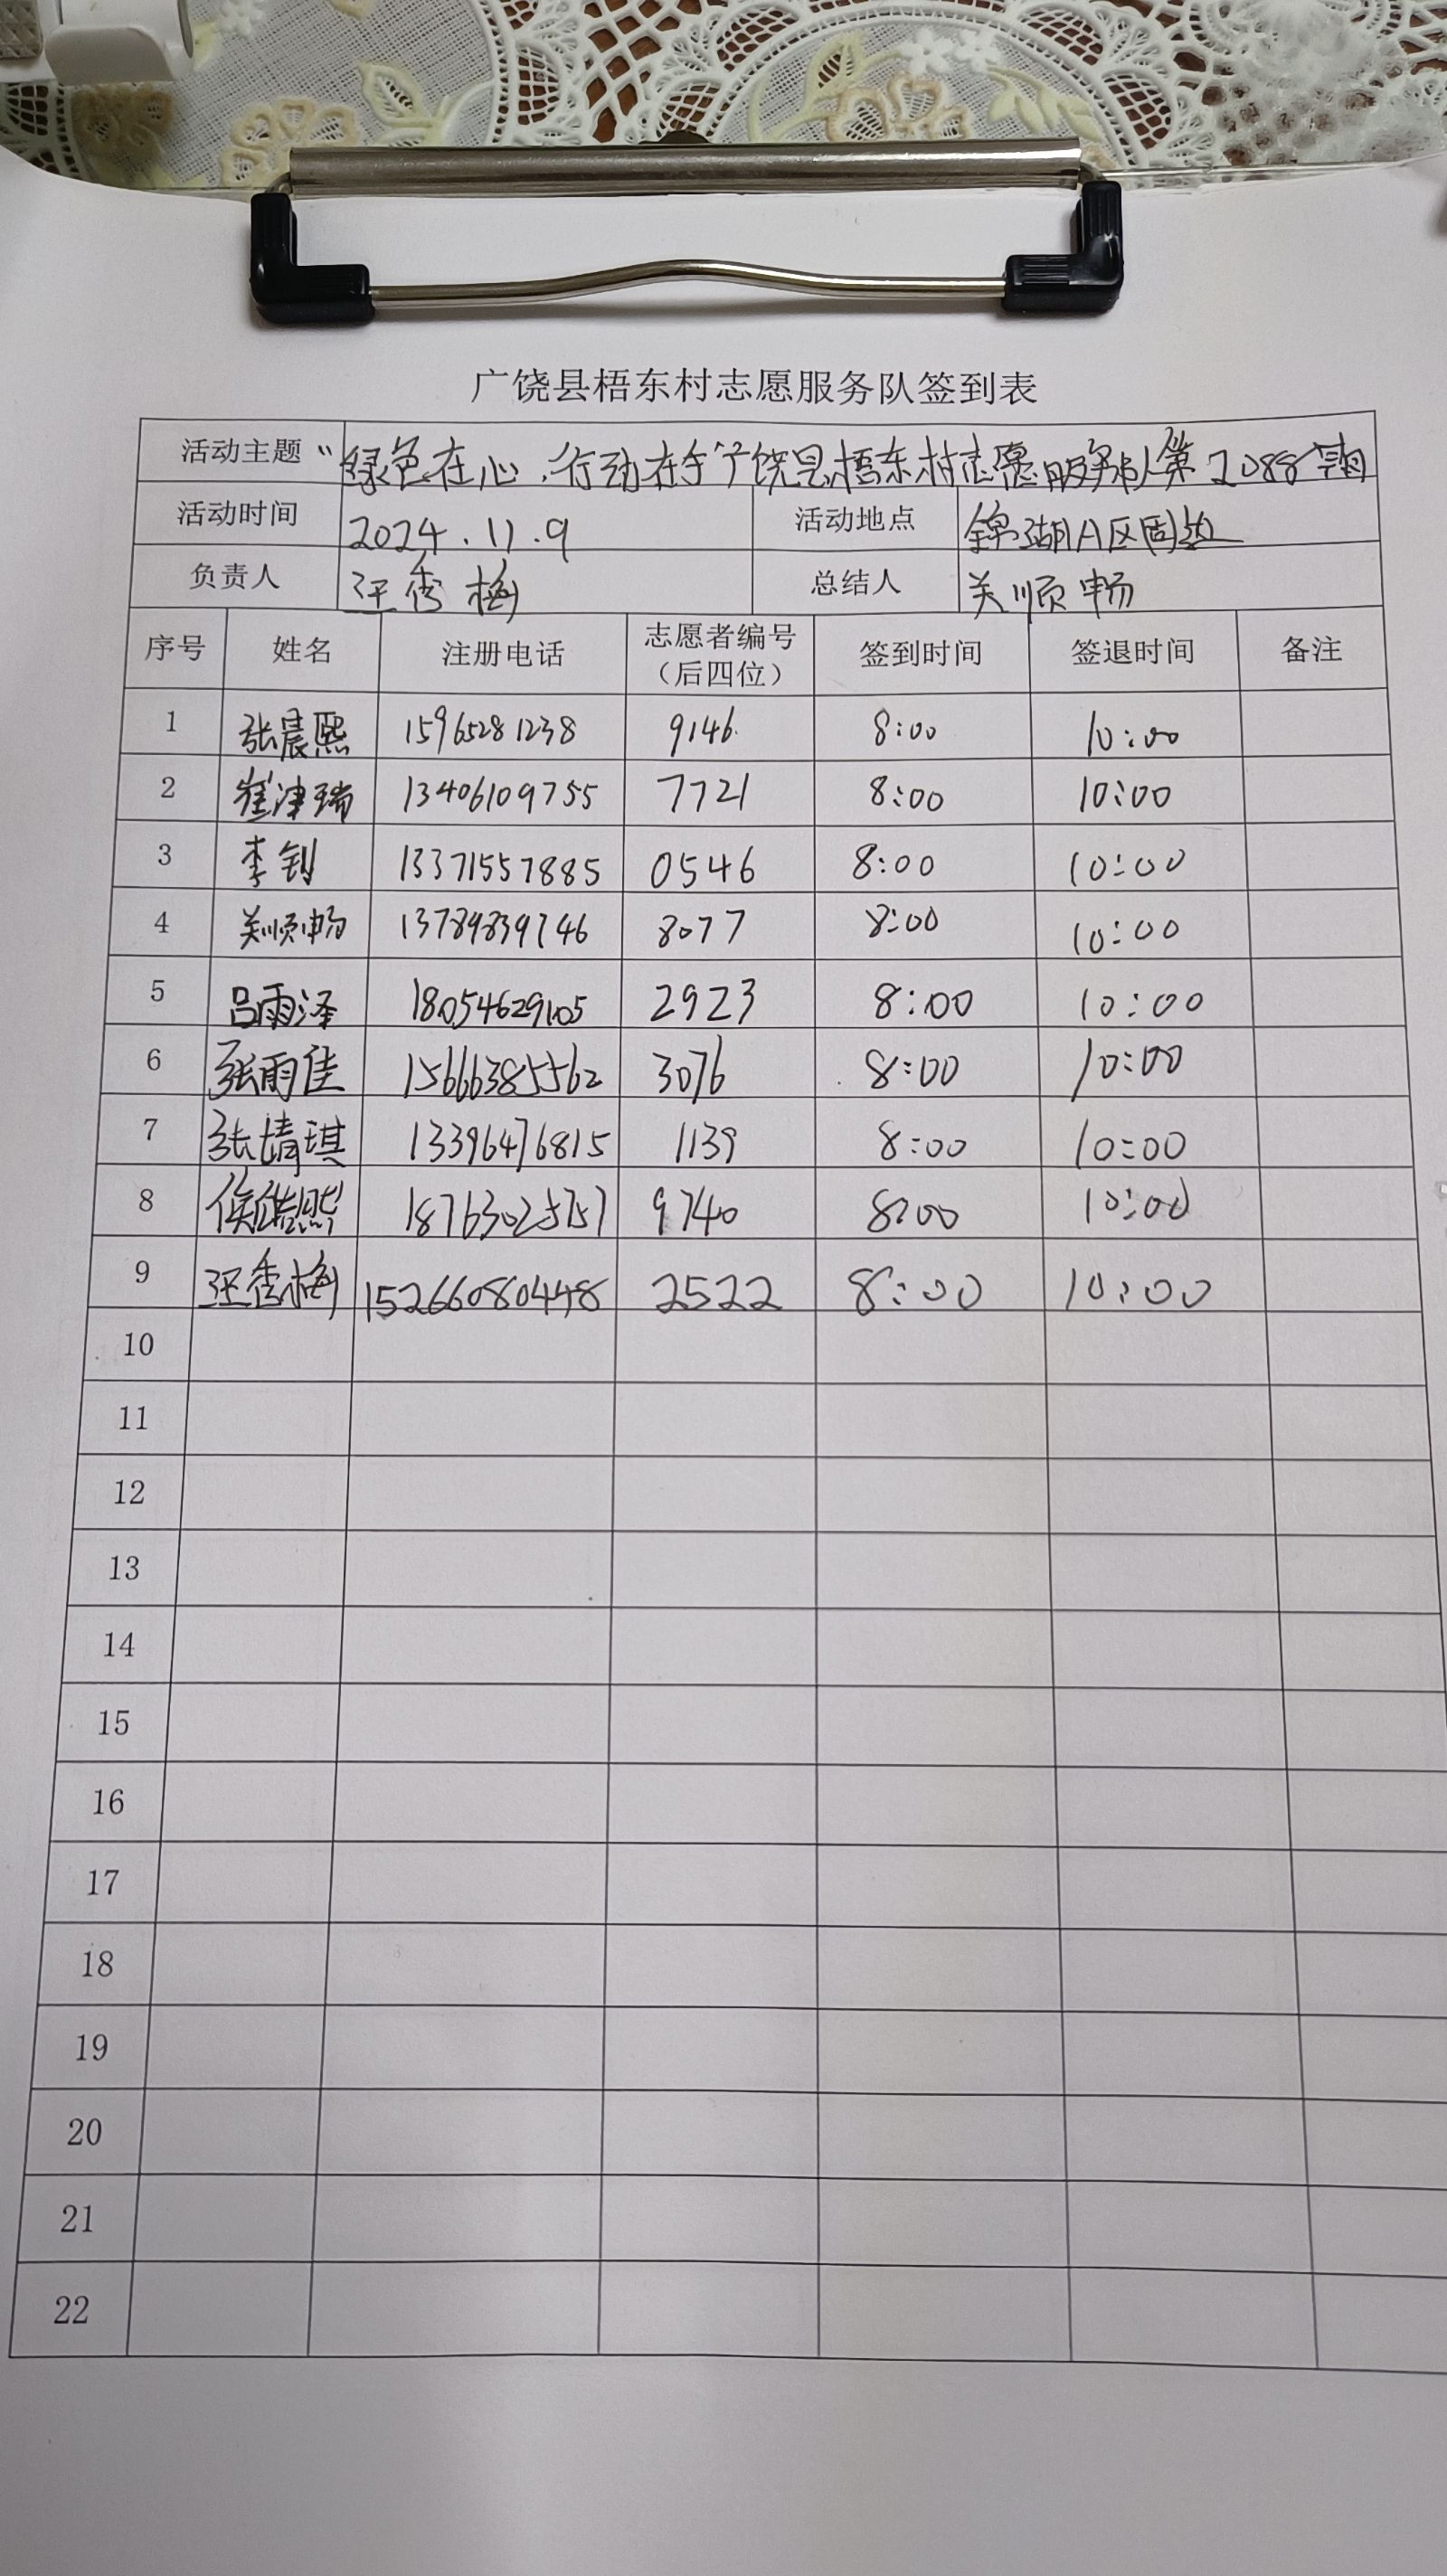 广饶县梧东村志愿服务队签到表
活动主题 "绿色在心,行动在手"广饶县梧东村志愿服务队第2088期
活动时间 2024.11.9 活动地点 锦湖A区周边
负责人 汪秀梅 总结人 关顺畅
序号 姓名 注册电话 志愿者编号(后四位) 签到时间 签退时间 备注
1 张晨熙 15965281238 9146 8:00 10:00
2 崔津瑞 13406109755 7721 8:00 10:00
3 李钊 13371557885 0546 8:00 10:00
4 关顺畅 13789839746 8077 8:00 10:00
5 吕雨泽 18054629105 2923 8:00 10:00
6 张雨佳 15666385562 3076 8:00 10:00
7 张婧琪 13396476815 1139 8:00 10:00
8 侯 熙 18763025757 9740 8:00 10:00
9 汪秀梅 15266080448 2522 8:00 10:00
10
11
12
13
14
15
16
17
18
19
20
21
22